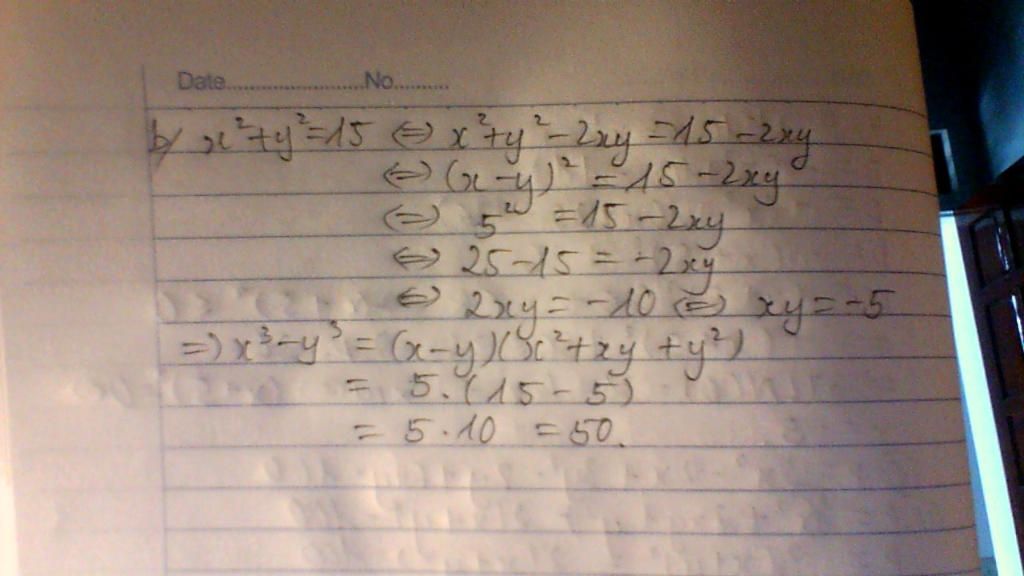 Date........................No..........
b/ x²+y²=15 ⇔ x²+y²-2xy=15-2xy
⇔ (x-y)²=15-2xy
⇔ 5² =15-2xy
⇔ 25-15=-2xy
⇔ 2xy=-10 ⇔ xy=-5
⇒ x³-y³=(x-y)(x²+xy+y²)
= 5.(15-5)
= 5.10 =50.